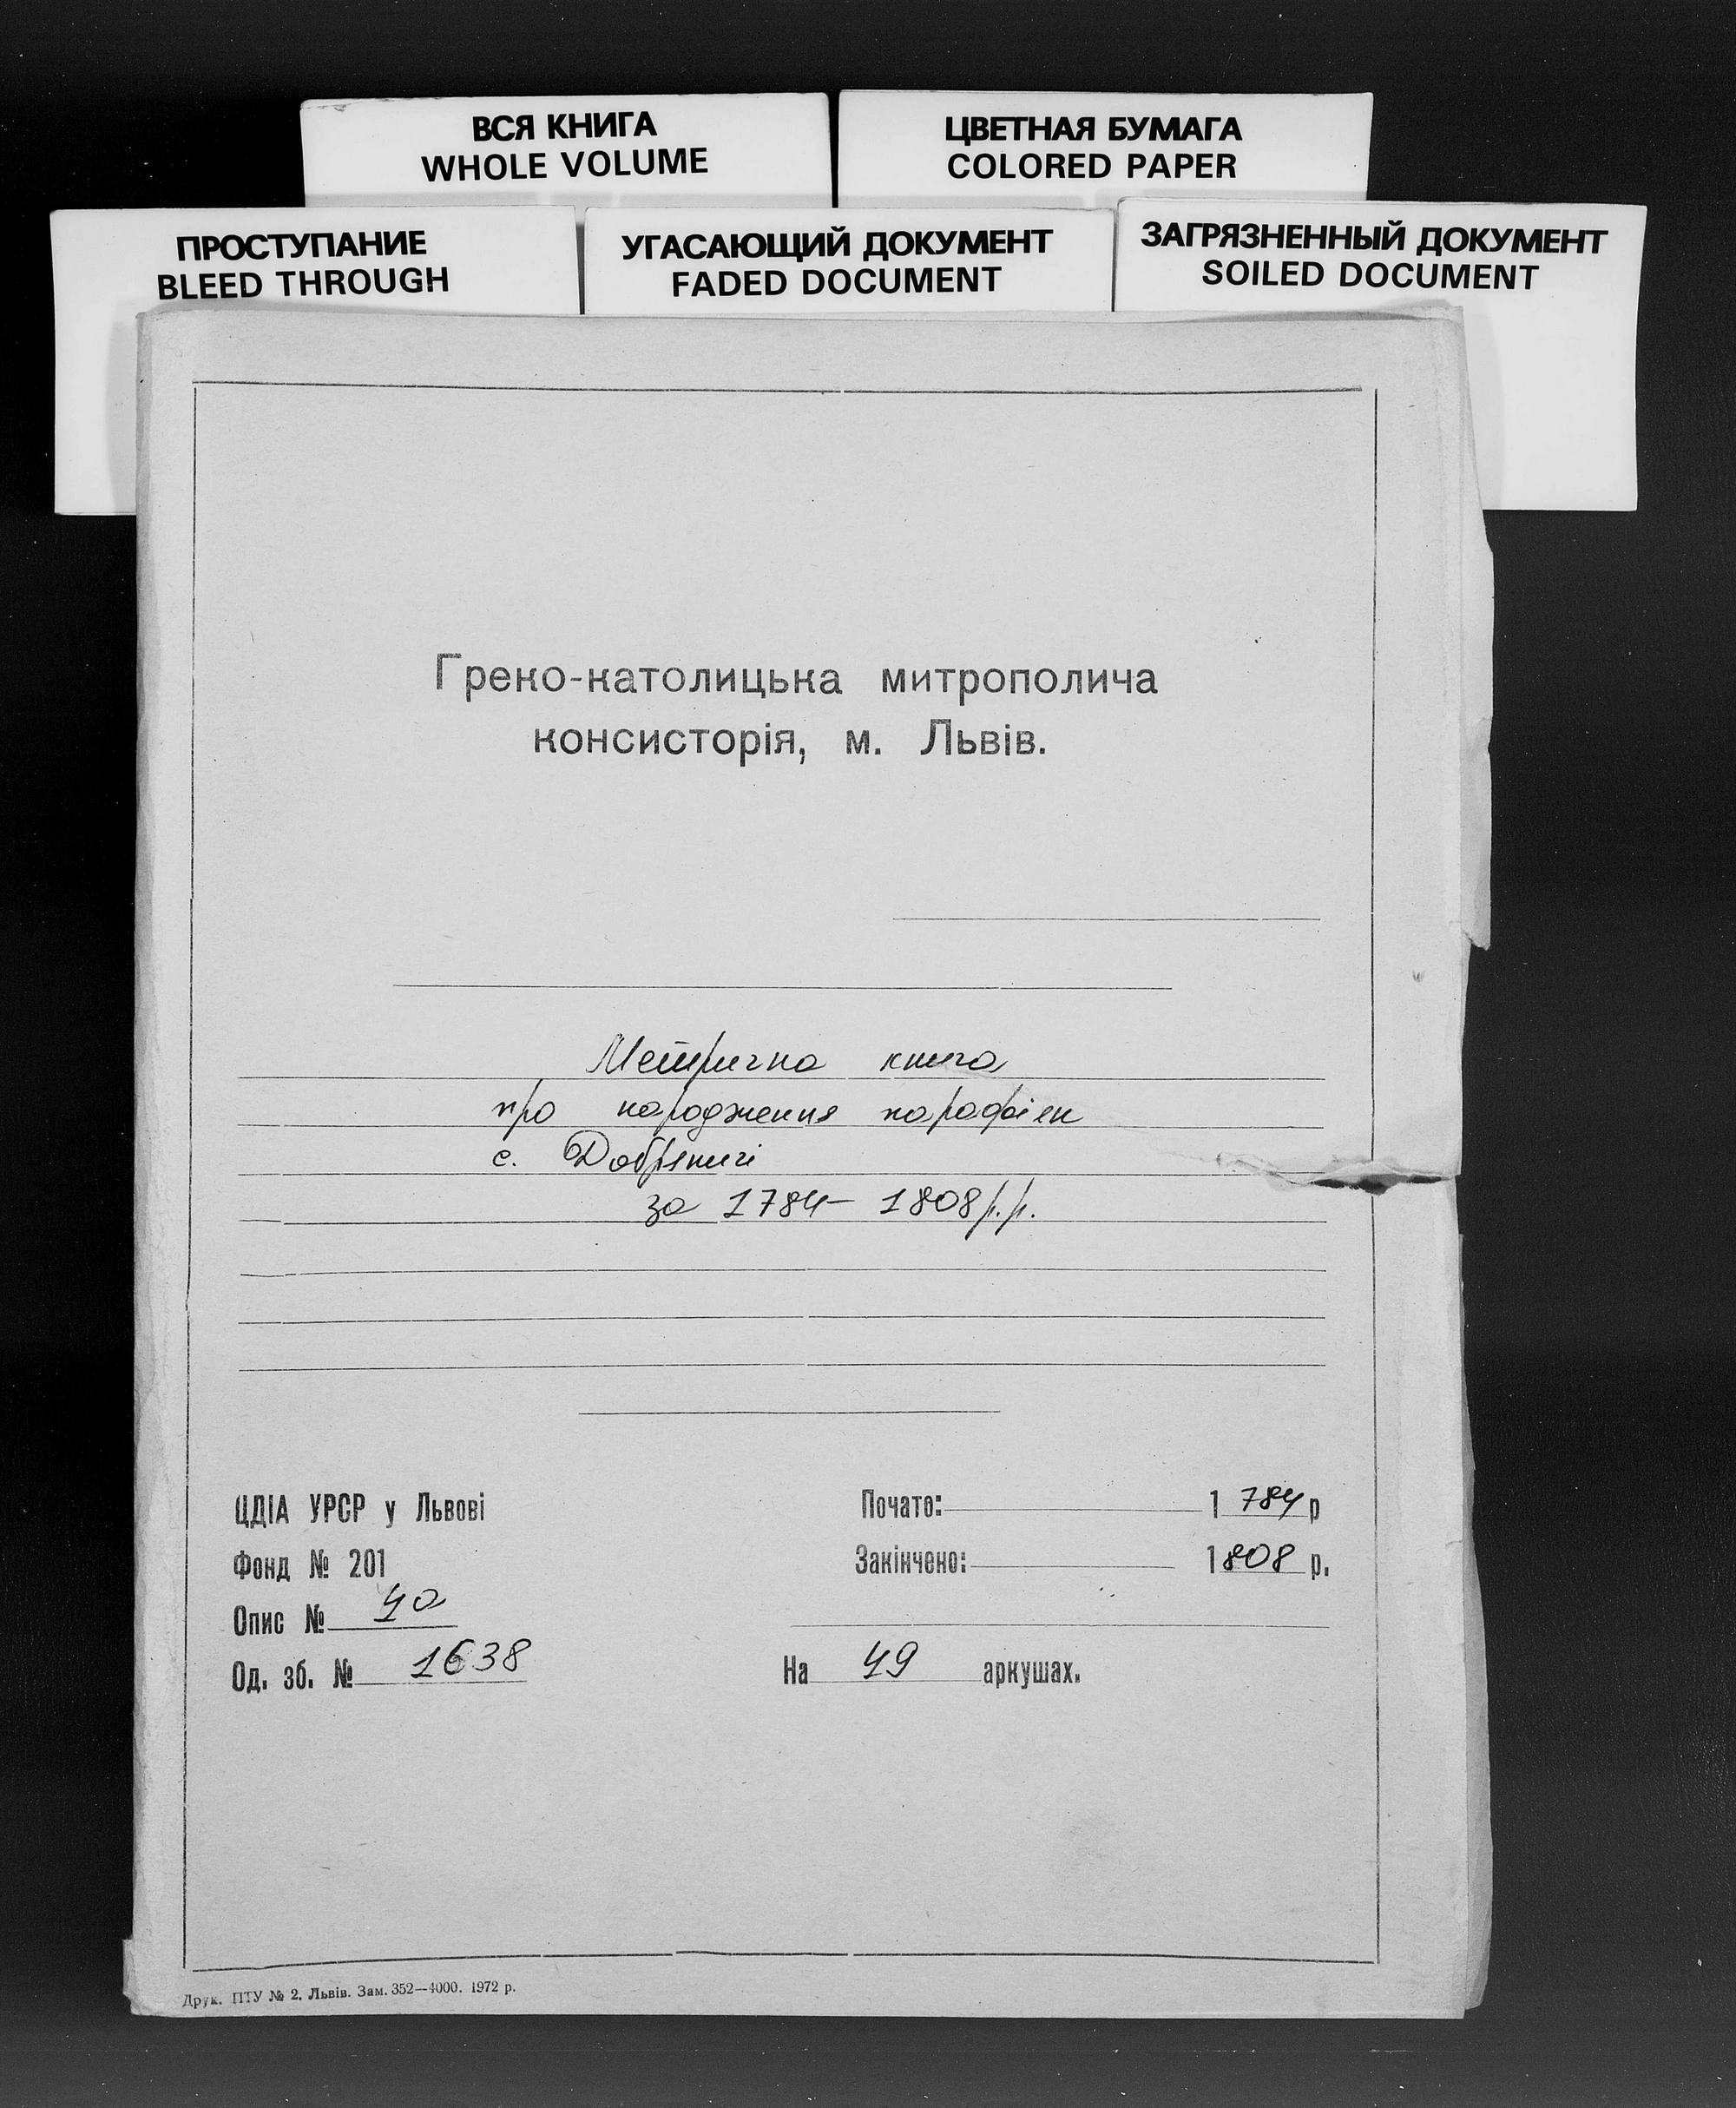 ВСЯ КНИГА
WHOLE VOLUME
ЦВЕТНАЯ БУМАГА
COLORED PAPER
ПРОСТУПАНИЕ
BLEED THROUGH
УГАСАЮЩИЙ ДОКУМЕНТ
FADED DOCUMENT
ЗАГРЯЗНЕННЫЙ ДОКУМЕНТ
SOILED DOCUMENT
Греко-католицька митрополича
консисторія, м. Львів.
Метрична книга
про народження парафіян
с. Добряничі
за 1784- 1808 р.р.
ЦДІА УРСР у Львові
Фонд № 201
Опис № 4а
Од. зб. № 1638
Почато: 1784 р
Закінчено: 1808 р.
На 49 аркушах.
Друк. ПТУ № 2. Львів. Зам. 352—4000. 1972 р.